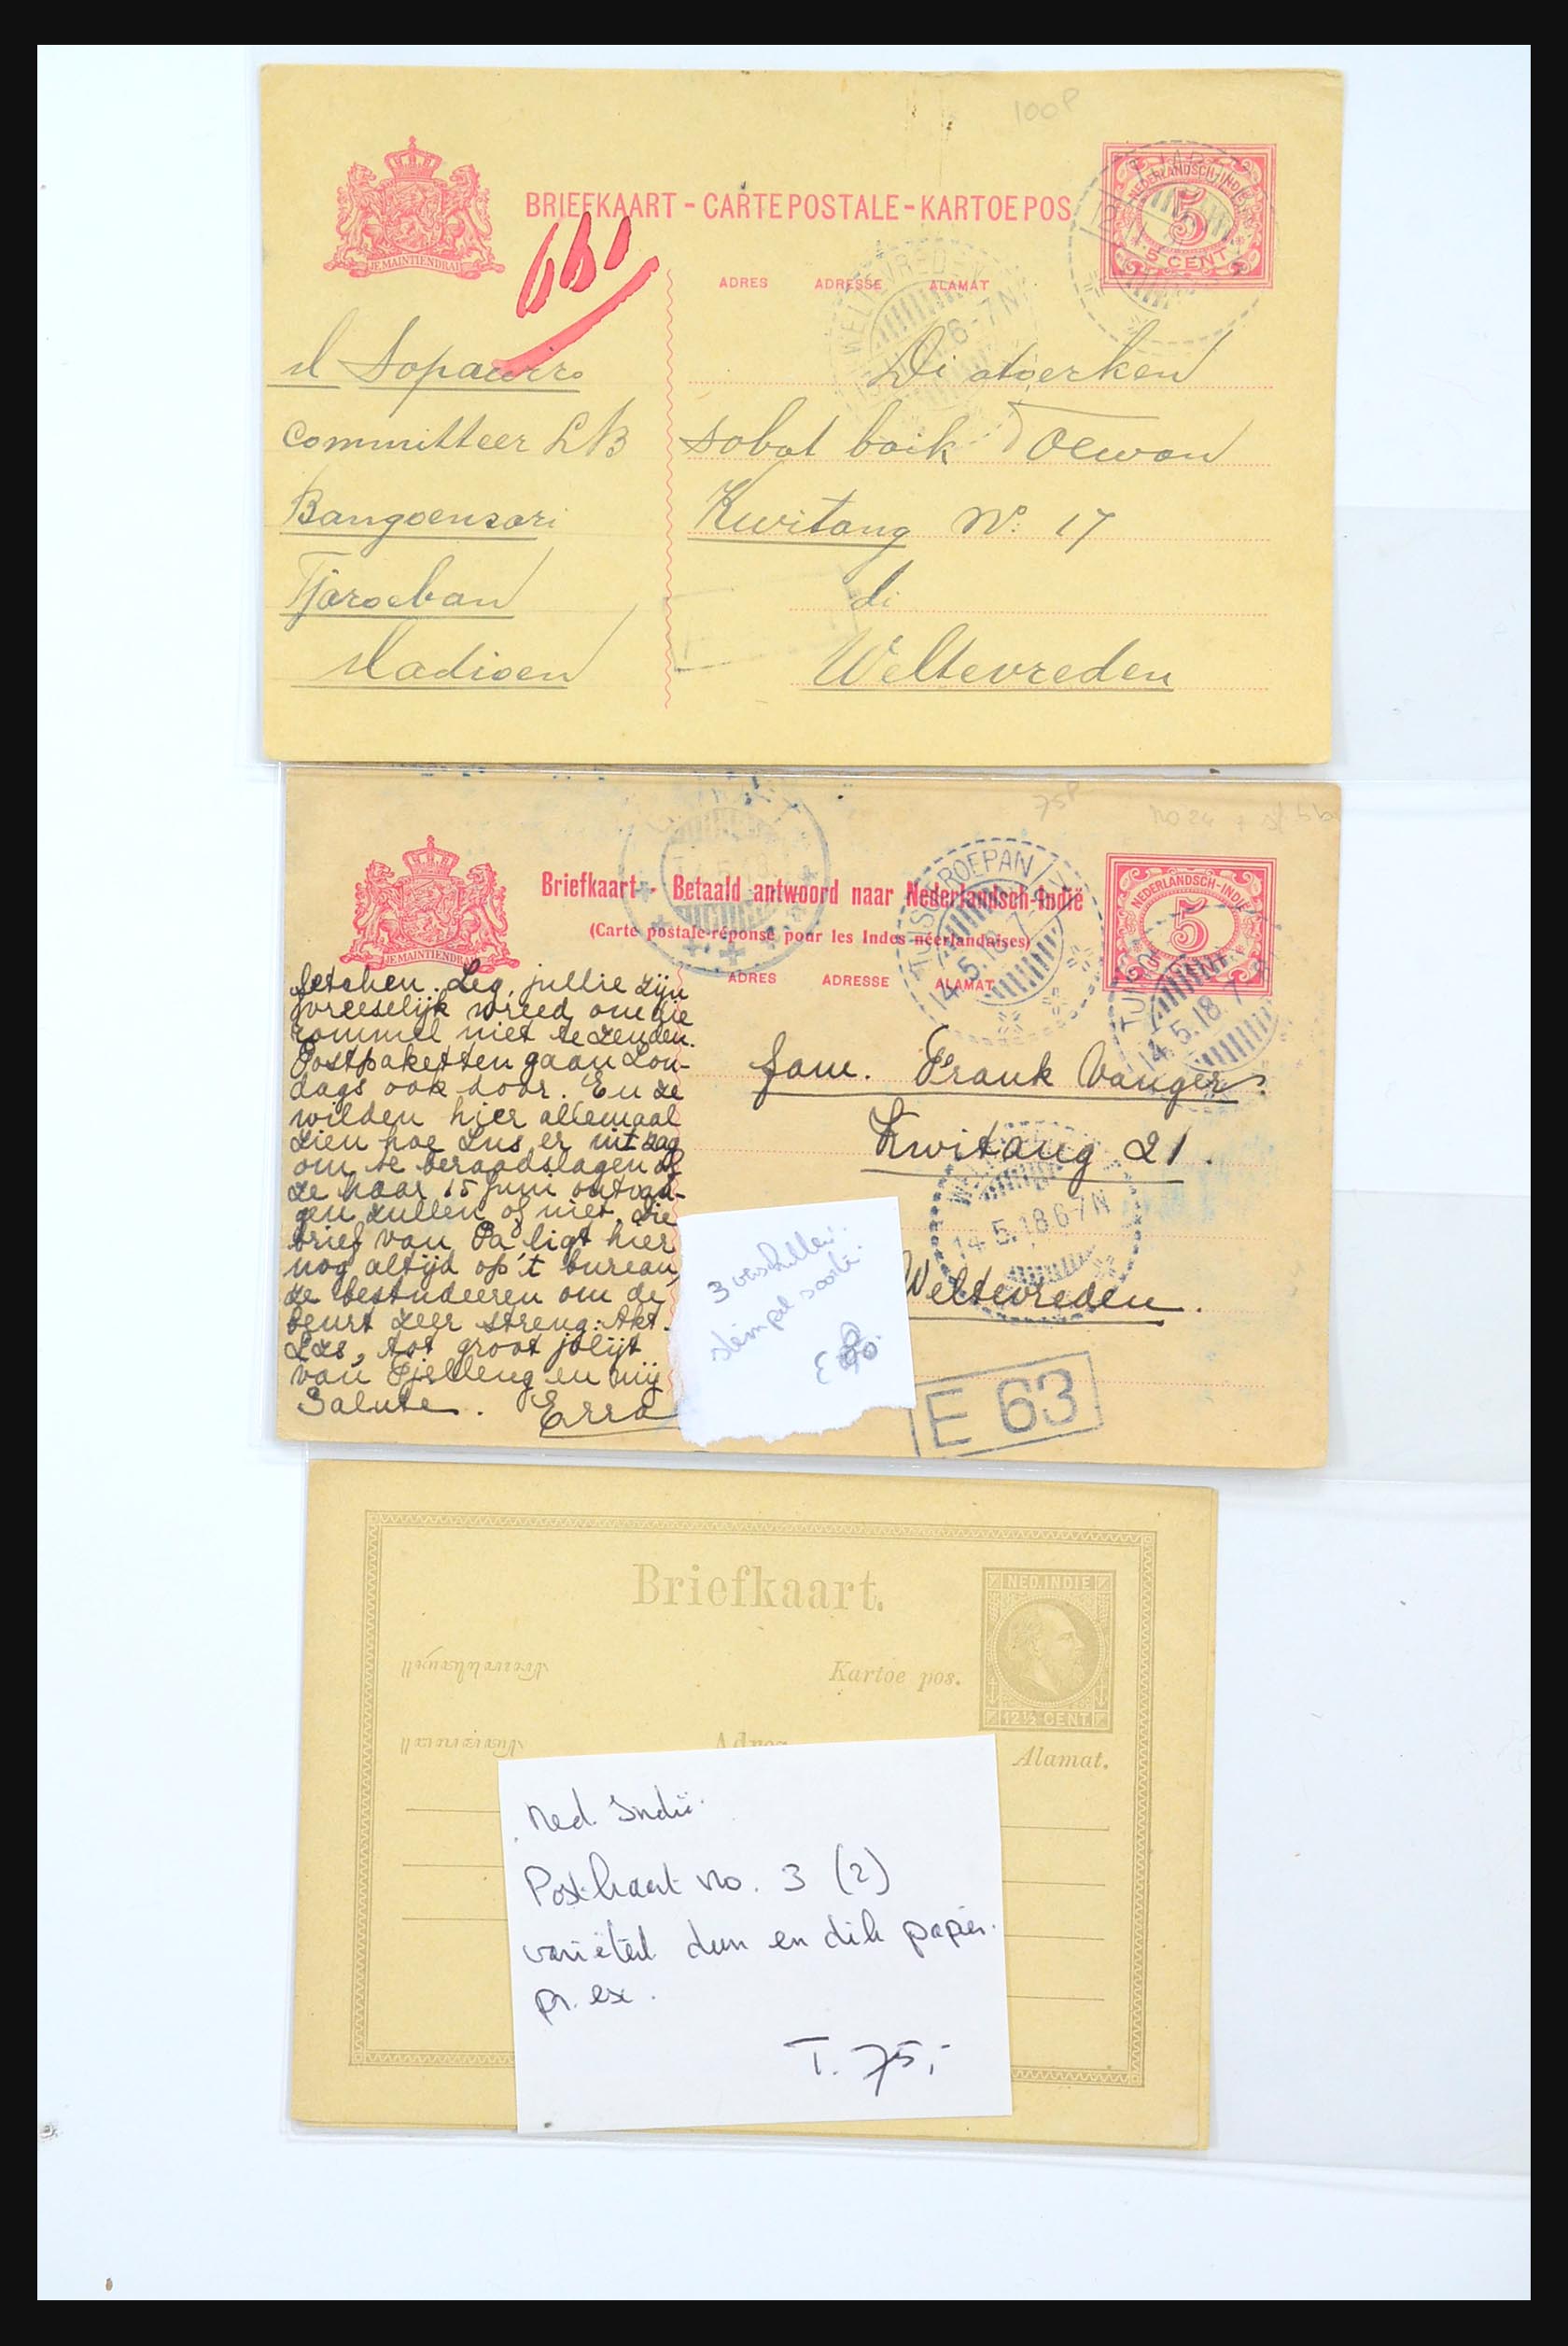 100P
BRIEFKAART - CARTE POSTALE - KARTOE POS
NEDERLANDSCH-INDIE
5
5 CENT
JE MAINTIENDRAI
ADRES ADRESSE ALAMAT
WELTEVREDEN
6-7N
M Sopawiro
Committeer LB
Bangoensari
Tjaroeban
Madioen
Di atoerken
sobat baik Toewan
Kwitang No: 17
di
Weltevreden
75P
no 24
Briefkaart - Betaald antwoord naar Nederlandsch-Indië
(Carte postale-réponse pour les Indes néerlandaises)
NEDERLANDSCH-INDIE
5
JE MAINTIENDRAI
ADRES ADRESSE ALAMAT
14.5.18.7
14.5.18.7
14.5.18.6-7N
Zeg, jullie zijn
vreeselijk wreed om die
rommel niet te zenden.
Postpaketten gaan Zon-
dags ook door. En ze
wilden hier allemaal
zien hoe Lus er uitzag
om te beraadslagen of
ze haar 15 Juni ontvan-
gen zullen of niet. Die
brief van Pa ligt hier
nog altijd op 't bureau,
ze bestudeeren om de
beurt zeer streng: Akt.
tot groot jolijt
van en mij
Salute. Erra
fam. Frank Vanger.
Kwitang 21.
Weltevreden.
3 verschillen.
stempel soorte.
E 63
Briefkaart.
NED. INDIE
12½ CENT.
Kartoe pos.
Adres
Alamat.
Ned. Indië.
Postkaart no. 3 (2)
variëteit dun en dik papier.
pr. ex.
T. 75,-